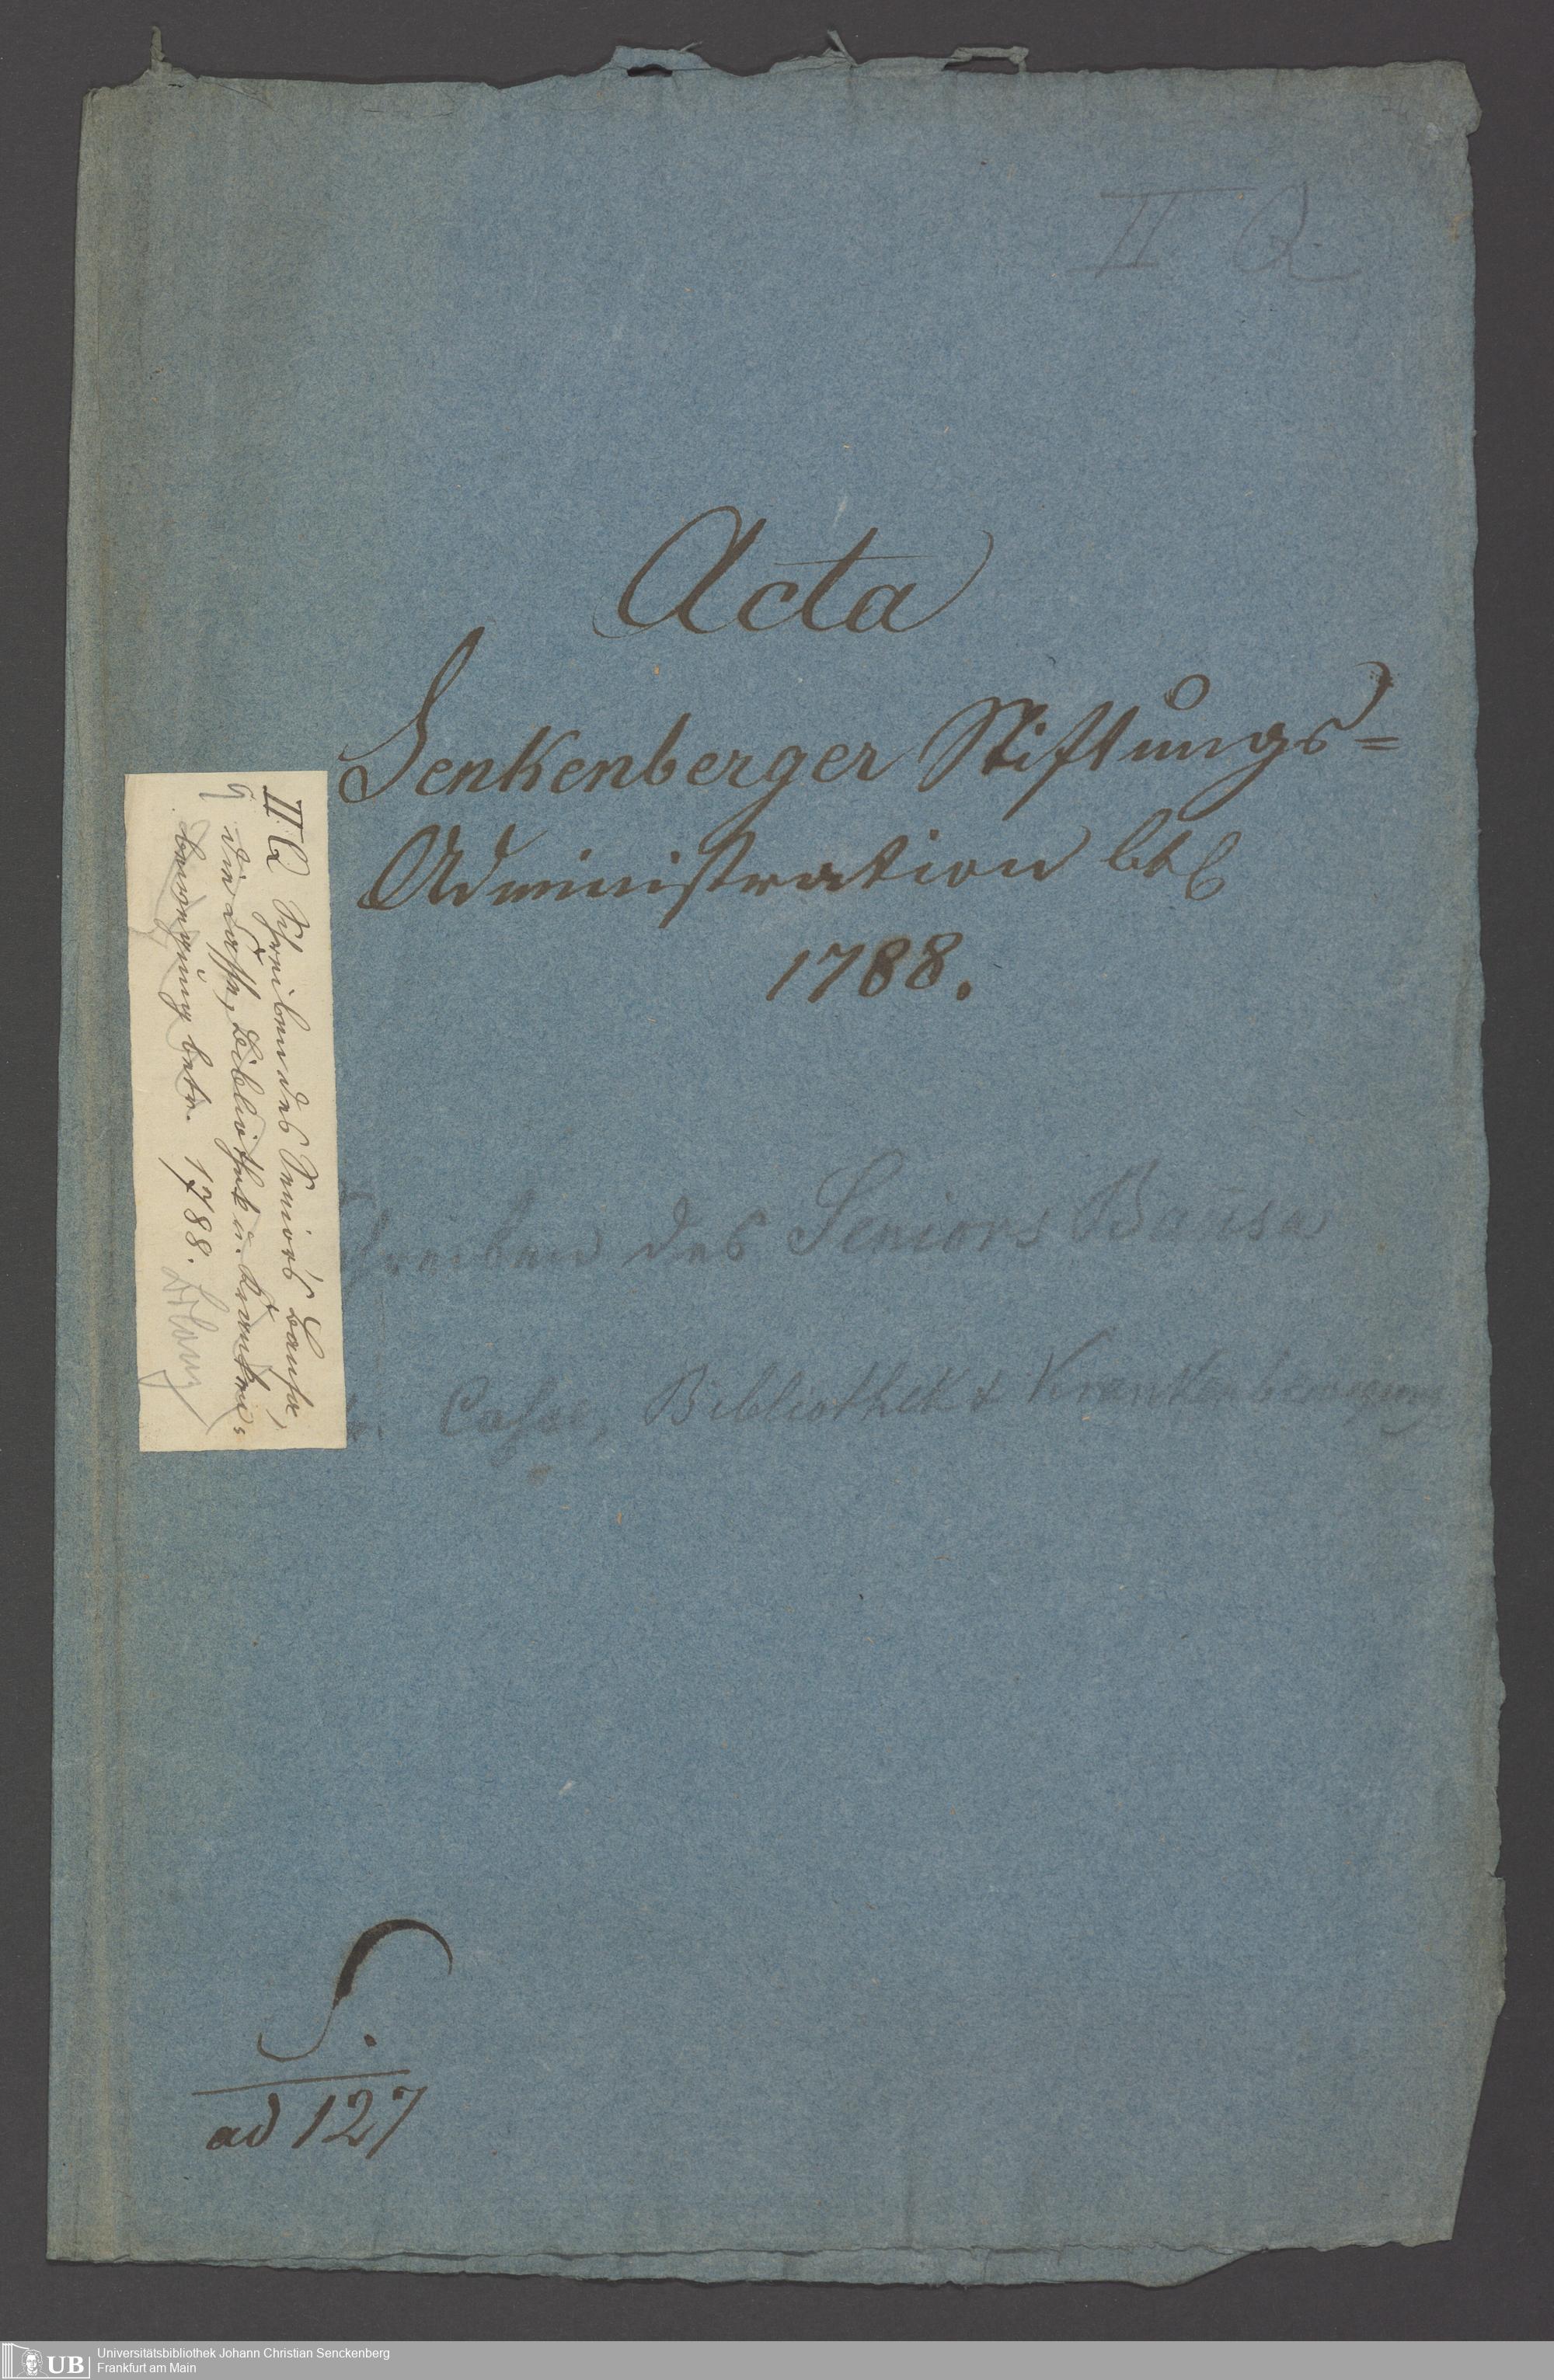 II Q
Acta
Senkenberger Stiftungs=
Administration btr
1788.
II Q Schreiben des Seniors Bausa,
die Casse, Bibliothek u. Kranken=
bewegung betr. 1788.
Schreiben des Seniors Baüsa
Casse, Bibliothek & Krankenbewegung
S.
ad 127
UB
Universitätsbibliothek Johann Christian Senckenberg
Frankfurt am Main